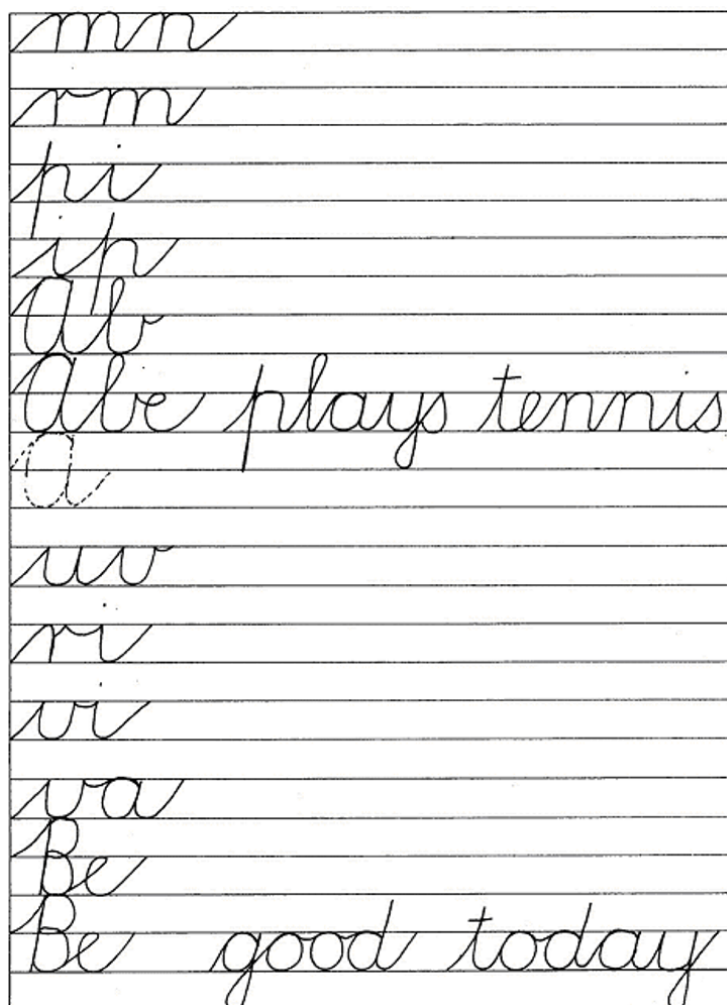 mn
rm
pi
ip
Ab
Abe plays tennis
a
uv
ri
vi
va
Be
Be good today